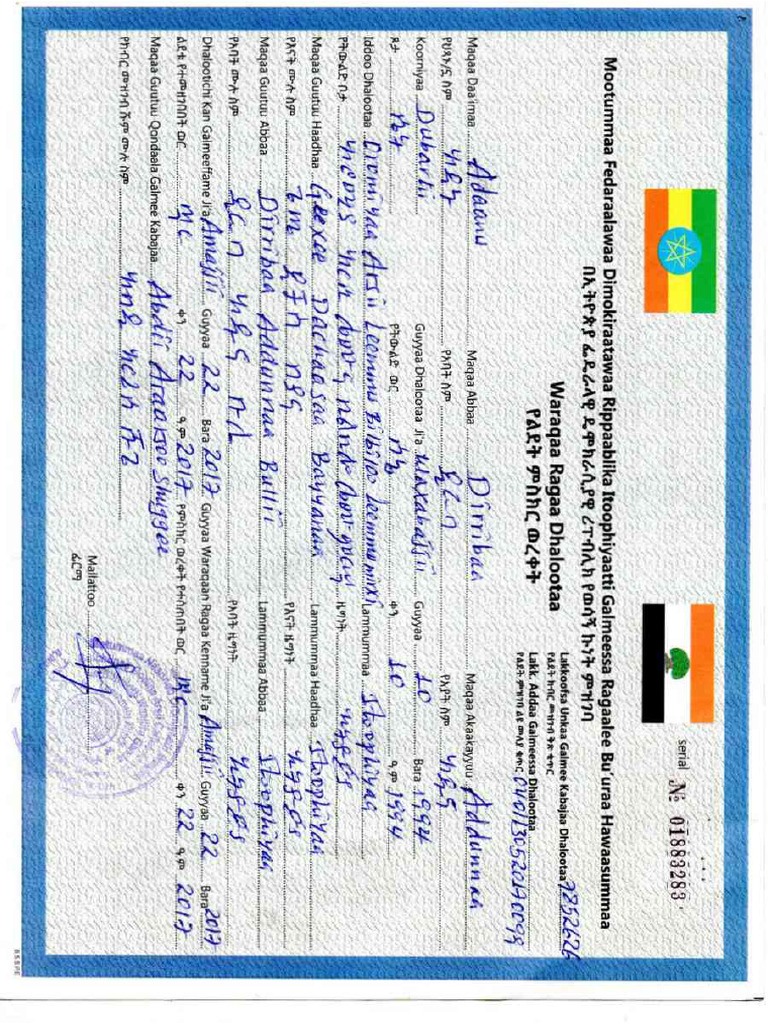 Mootummaa Fedaraalawaa Dimokiraatawaa Rippaablika Itoophiyaatti Galmeessa Ragaalee Bu'uraa Hawaasummaa
በኢትዮጵያ ፌዴራላዊ ዲሞክራሲያዊ ሪፐብሊክ የወሳኝ ኩነት ምዝገባ
serial № 01883283
Waraqaa Ragaa Dhalootaa
የልደት ምስክር ወረቀት
Lakkoofsa Unkaa Galmee Kabajaa Dhalootaa 7252626
የልደት ክብር መዝገብ ቅጽ ቁጥር
Lakk. Addaa Galmeessa Dhalootaa
የልደት ምዝገባ ልዩ መለያ ቁጥር
Maqaa Daa'imaa Adaanu Maqaa Abbaa Dirribaa Maqaa Akaakayyuu Addunnaa
የህጻኑ/ኗ ስም የአባት ስም ድሪባ የአያት ስም
Koorniyaa Dubartii Guyyaa Dhalootaa Ji'a Waxabajjii Guyyaa 10 Bara 1994
ጾታ ሴት የትውልድ ወር ሰኔ ቀን 10 ዓ.ም 1994
Iddoo Dhalootaa Oromiyaa Arsii Leemmu Bilbiloo Lammummaa Itoophiyaa
የትውልድ ቦታ ዜግነት
Maqaa Guutuu Haadhaa Dachaasaa Bayyanaa Lammummaa Haadhaa Itoophiyaa
የእናት ሙሉ ስም የእናት ዜግነት
Maqaa Guutuu Abbaa Dirribaa Addunnaa Bullii Lammummaa Abbaa Itoophiyaa
የአባት ሙሉ ስም ድሪባ የአባት ዜግነት
Dhalootichi Kan Galmeeffame Ji'a Amajjii Guyyaa 22 Bara 2017 Guyyaa Waraqaan Ragaa Kenname Ji'a Amajjii Guyyaa 22 Bara 2017
ልደቱ የተመዘገበበት ወር ጥር ቀን 22 ዓ.ም 2017 የምስክር ወረቀት የተሰጠበት ወር ጥር ቀን 22 ዓ.ም 2017
Maqaa Guutuu Qondaala Galmee Kabajaa Abdii Araarsoo Shuggee
የክብር መዝገብ ሹም ሙሉ ስም
Mallattoo
ፊርማ
B.S.B.P.E